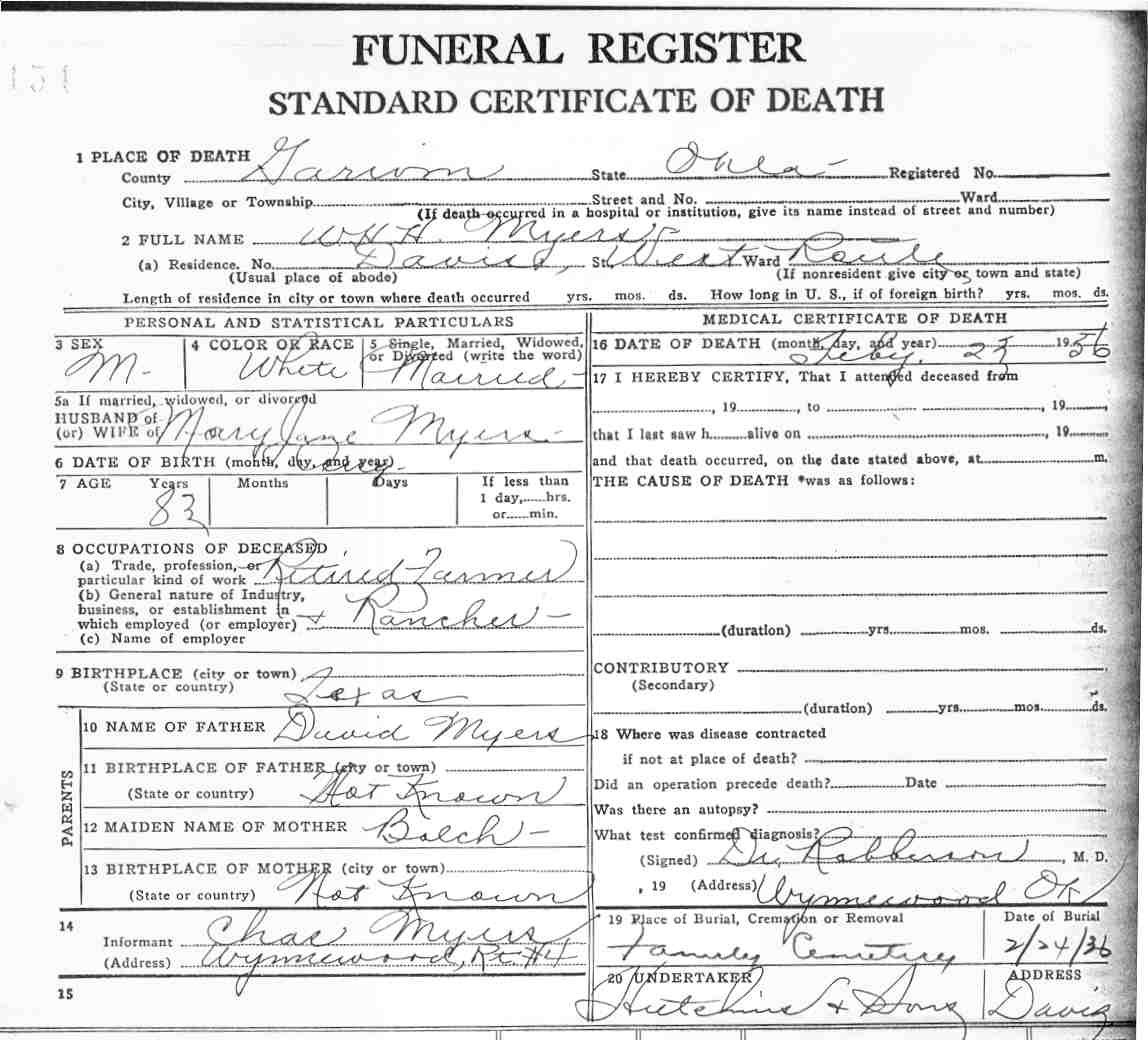 151
FUNERAL REGISTER
STANDARD CERTIFICATE OF DEATH
1 PLACE OF DEATH
County Garvin State Okla - Registered No.
City, Village or Township Street and No. Ward
(If death occurred in a hospital or institution, give its name instead of street and number)
2 FULL NAME W.H.H. Myers
(a) Residence. No. Davis, St. West Ward Route
(Usual place of abode) (If nonresident give city or town and state)
Length of residence in city or town where death occurred yrs. mos. ds. How long in U. S., if of foreign birth? yrs. mos. ds.
PERSONAL AND STATISTICAL PARTICULARS
3 SEX 4 COLOR OR RACE 5 Single, Married, Widowed, or Divorced (write the word)
M - White Married -
5a If married, widowed, or divorced
HUSBAND of
(or) WIFE of Mary Jane Myers -
6 DATE OF BIRTH (month, day, and year)
7 AGE Years Months Days If less than
1 day,......hrs.
or......min.
83
8 OCCUPATIONS OF DECEASED
(a) Trade, profession, or
particular kind of work Retired Farmer
(b) General nature of Industry,
business, or establishment in
which employed (or employer) + Rancher -
(c) Name of employer
9 BIRTHPLACE (city or town)
(State or country) Texas
PARENTS
10 NAME OF FATHER David Myers
11 BIRTHPLACE OF FATHER (city or town)
(State or country) Not Known
12 MAIDEN NAME OF MOTHER Bolch -
13 BIRTHPLACE OF MOTHER (city or town)
(State or country) Not Known
14
Informant Chas Myers
(Address) Wynnewood, Rt. #4
15
MEDICAL CERTIFICATE OF DEATH
16 DATE OF DEATH (month, day, and year) Feby. 23 1936
17 I HEREBY CERTIFY, That I attended deceased from
, 19 , to , 19
that I last saw h alive on , 19
and that death occurred, on the date stated above, at m.
THE CAUSE OF DEATH *was as follows:
(duration) yrs. mos. ds.
CONTRIBUTORY
(Secondary)
(duration) yrs. mos. ds.
18 Where was disease contracted
if not at place of death?
Did an operation precede death? Date
Was there an autopsy?
What test confirmed diagnosis?
(Signed) Dr. Robberson , M. D.
, 19 (Address) Wynnewood Ok
19 Place of Burial, Cremation or Removal Date of Burial
Family Cemetery 2/24/36
20 UNDERTAKER ADDRESS
Hutchins & Sons Davis